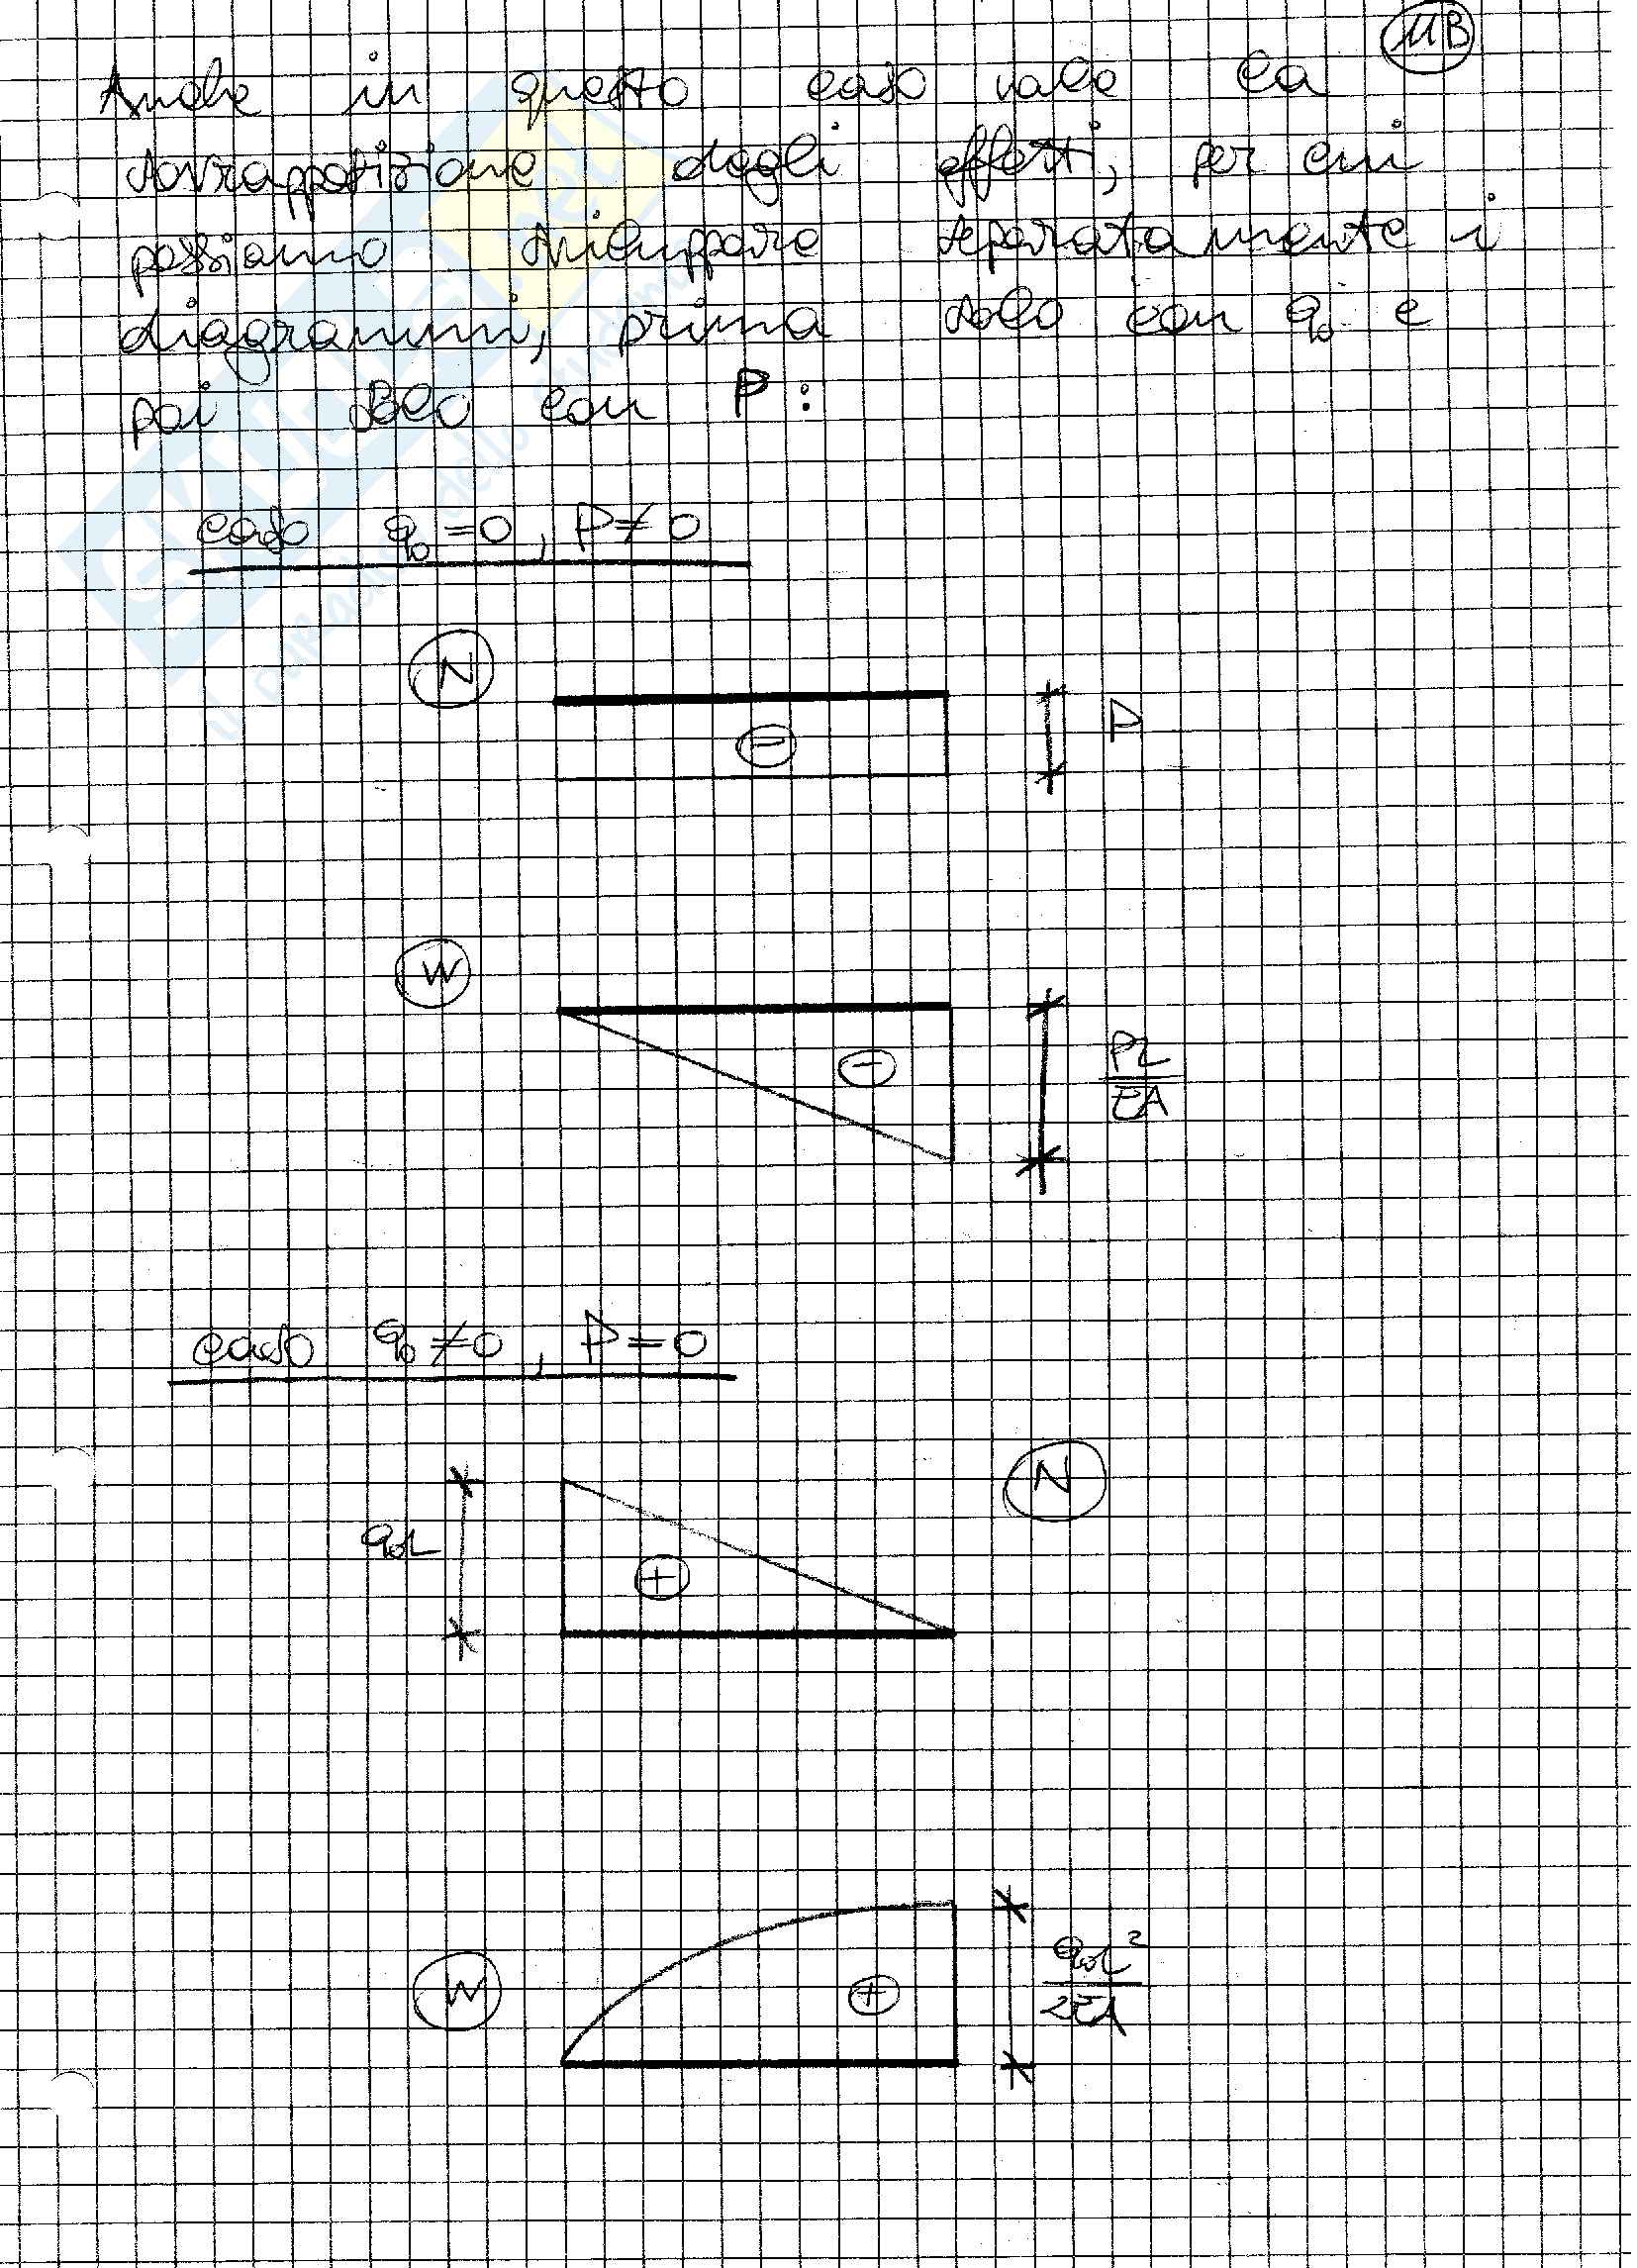 MB
Anche in questo caso vale la
sovrapposizione degli effetti, per cui
possiamo sviluppare separatamente i
diagrammi, prima solo con q₀ e
poi solo con P:
caso q₀=0, P≠0
N
−
P
W
−
PL
EA
caso q₀≠0, P=0
N
q₀L
+
W
+
q₀L²
2EA
SKUOLA.net
il paradiso dello studente